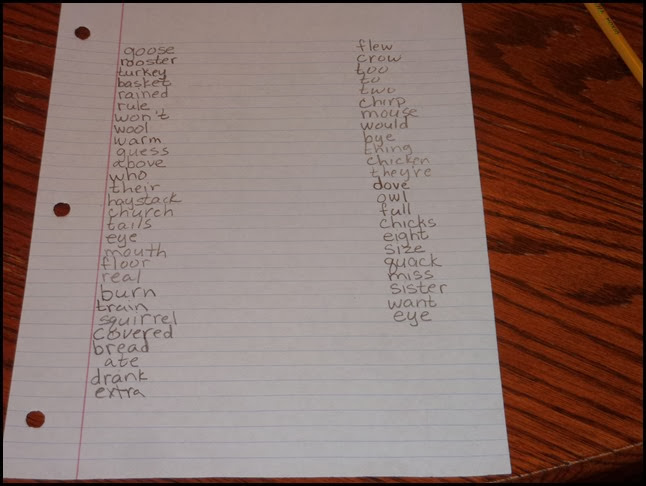 goose
rooster
turkey
basket
rained
rule
won't
wool
warm
guess
above
who
their
haystack
church
tails
eye
mouth
floor
real
burn
train
squirrel
covered
bread
ate
drank
extra
flew
crow
too
to
two
chirp
mouse
would
bye
thing
chicken
they're
dove
owl
full
chicks
eight
size
quack
miss
sister
want
eye